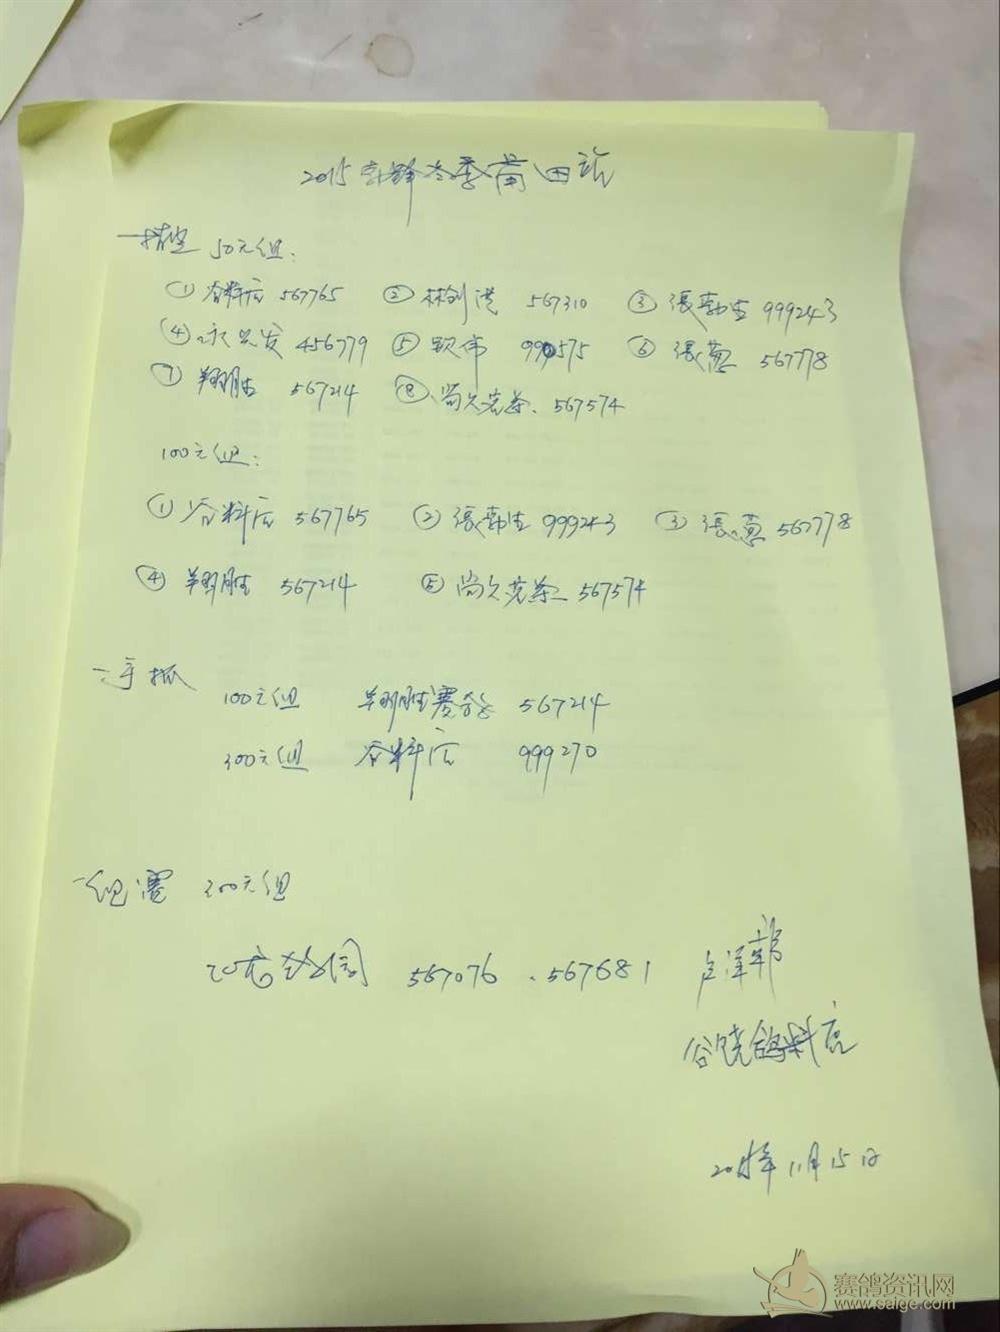 2015 冬季莆田站
一 指定 50元组:
① 谷料店 567765 ② 林剑洪 567310 ③ 張勤生 999243
④ 永兴发 456779 ⑤ 伟 990575 ⑥ 張 567778
⑦ 翔胜 567214 ⑧ 尚久茗茶 567574
100元组:
① 谷料店 567765 ② 張勤生 999243 ③ 張 567778
④ 翔胜 567214 ⑤ 尚久茗茶 567574
二 手抓
100元组 翔胜赛鸽 567214
300元组 谷料店 999270
组赛 300元组
567076 . 567681 卢泽
谷饶鸽料店
2015年11月15日
赛鸽资讯网
www.saige.com